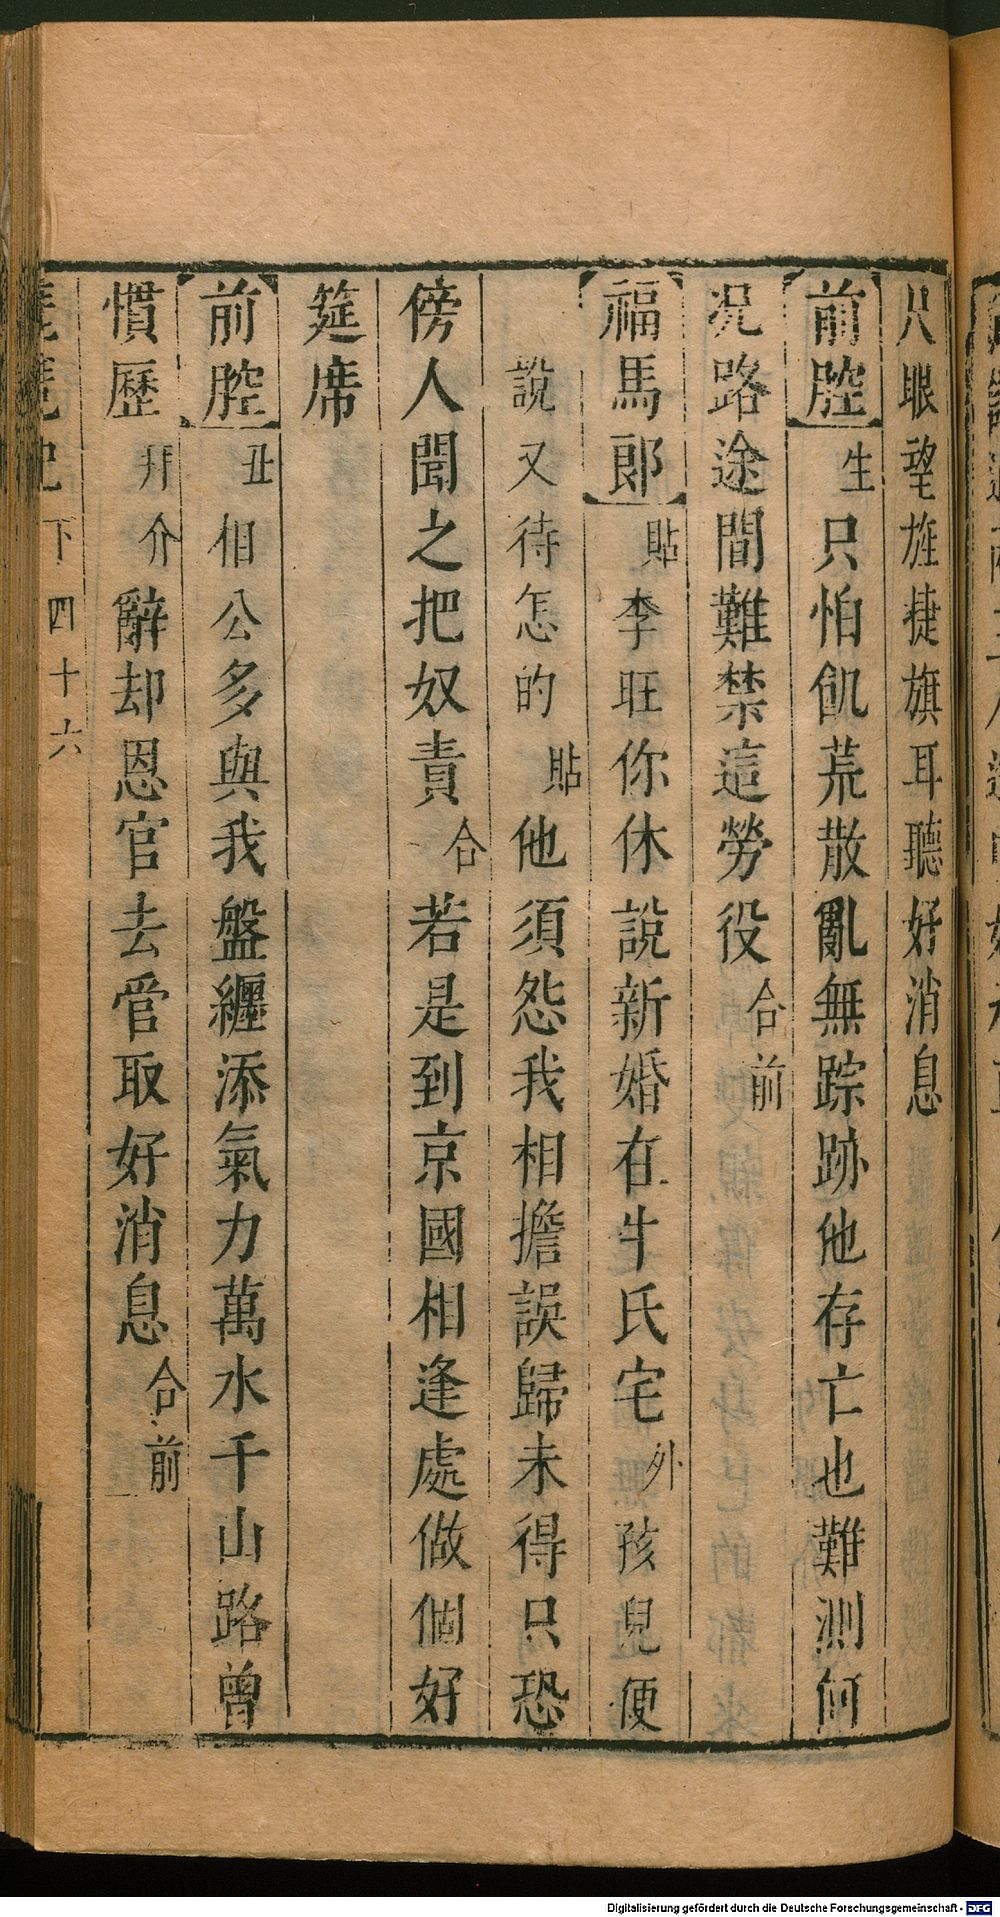 只眼望旌捷旗耳聽好消息
前腔 生 只怕飢荒散亂無踪跡他存亡也難測何
况路途間難禁這勞役 合前
福馬郎 貼 李旺你休說新婚在牛氏宅 外 孩兒便
說又待怎的 貼 他須怨我相擔誤歸未得只恐
傍人聞之把奴責 合 若是到京國相逢處做個好
筵席
前腔 丑 相公多與我盤纏添氣力萬水千山路曾
慣歷 拜介 辭却恩官去管取好消息 合前
下 四十六
Digitalisierung gefördert durch die Deutsche Forschungsgemeinschaft - DFG